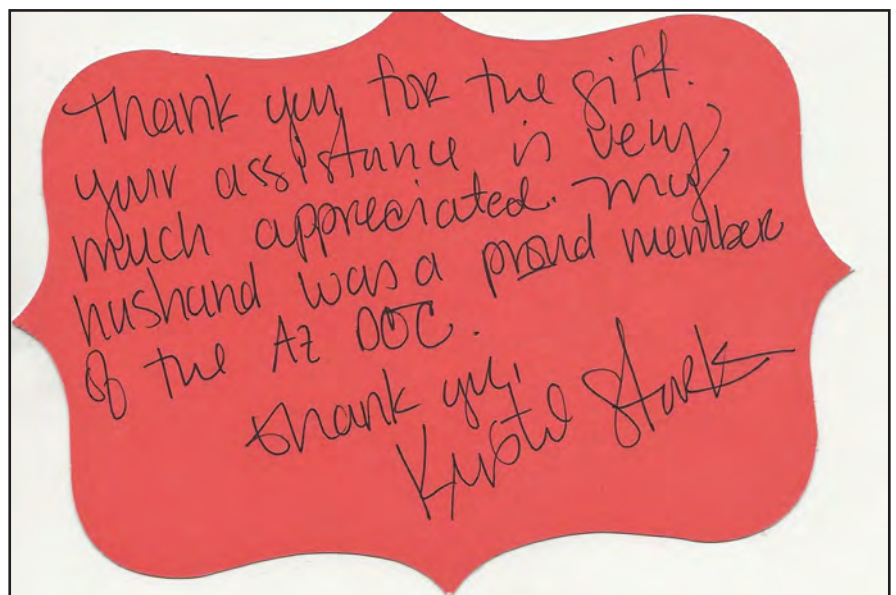 Thank you for the gift.
your assistance is very
much appreciated. my
husband was a proud member
of the AZ DOC.
Thank you,
Stark